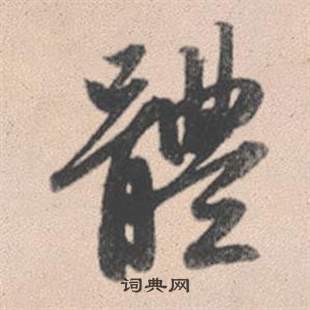 體
词典网